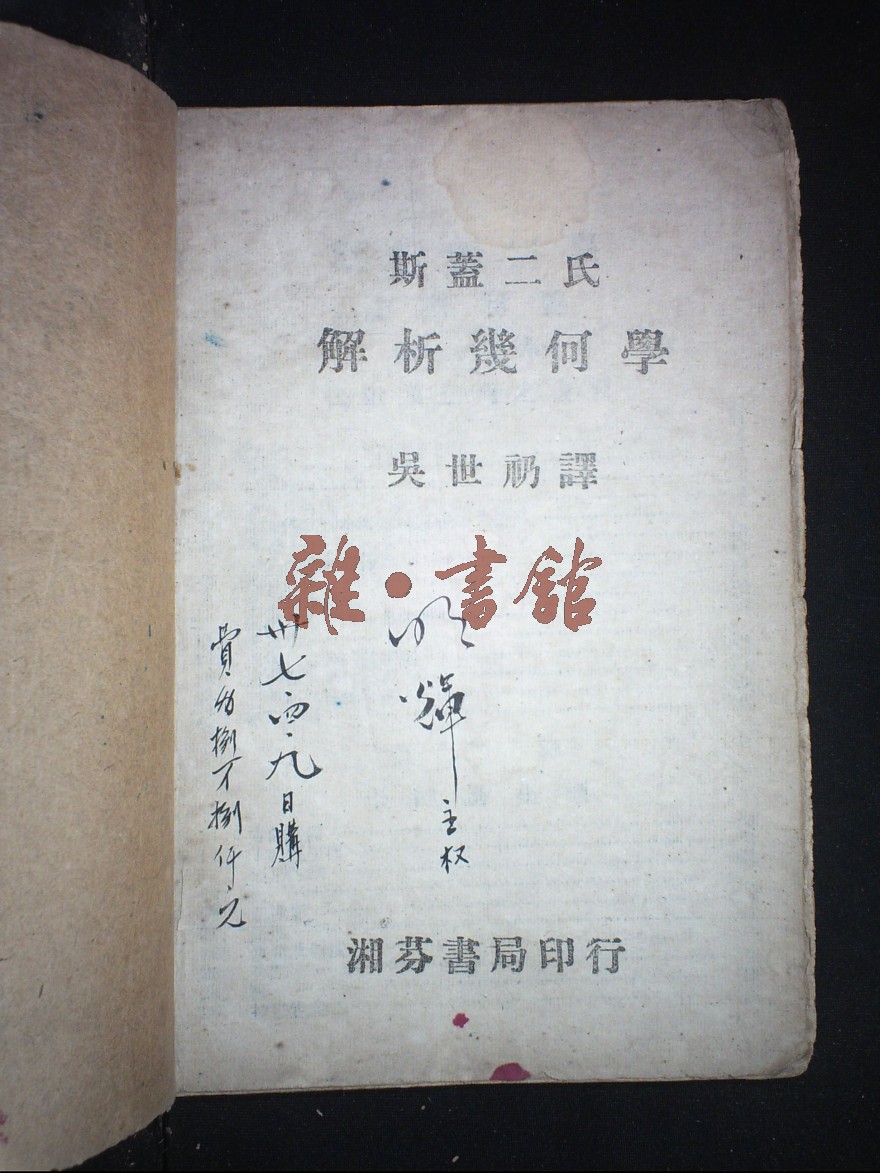 斯蓋二氏
解析幾何學
吳世礽譯
雜·書館
輝主权
卅七·四·九日購
費捌万捌仟元
湘芬書局印行